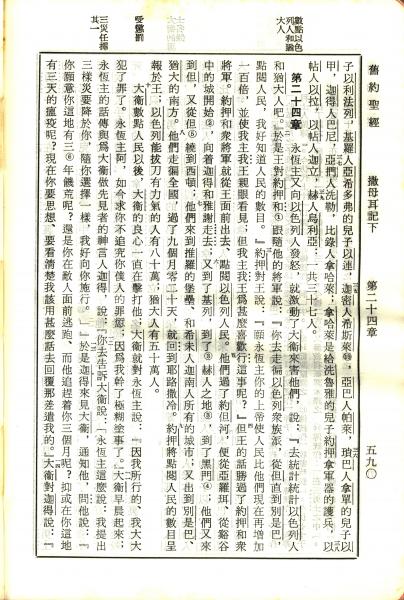 舊約聖經　撒母耳記下　第二十四章　五九〇
子以利法列、基羅人亞希多弗的兒子以連、迦密人希斯萊、亞巴人帕萊、瑣巴人拿單的兒子以
甲、迦得人巴尼、亞捫人洗勒、比錄人拿哈萊；拿哈萊是給洗魯雅的兒子約押拿軍器的護兵，以
帖人以拉、以帖人迦立、赫人烏利亞：一共三十七人。
第二十四章　永恆主又向以色列人發怒，就激動了大衛來害他們，說：『去統計統計以色列人
和猶大人吧。』於是王對約押和跟隨他的將軍說：『你去走徧以色列眾族派，從但直到別是巴、
點閱人民，我好知道人民的數目。』約押對王說：『願永恆主你的上帝使人民比他們現在再增加
一百倍，並使我主我王親眼看見；但我主我王爲甚麼喜歡行這事呢？』但王的話勝過了約押和眾
將軍。約押和眾將軍就從王面前出去、點閱以色列人民。他們過了約但河，便從亞羅珥、從谿谷
中的城開始，向着迦得和雅謝走去；又到了基列，到了赫人之地，到了黑門；他們又來
到但，又從但繞到西頓；他們來到推羅的堡壘、和希未人迦南人所有的城市；又出到別是巴、
猶大的南方。他們走徧全國，過了九個月零二十天，就回到耶路撒冷。約押將點閱人民的數目呈
報於王；以色列能拔刀有力氣的人有八十萬；猶大人有五十萬人。
大衛數點人民以後，大衛的良心一直在擊打他；大衛就對永恆主說：『因我所行的、我大大
犯了罪了。永恆主阿，如今求你不追究你僕人的罪愆；因爲我幹了極糊塗事了。』大衛早晨起來；
永恆主的話傳與爲大衛做先見者的神言人迦得，說：『你去告訴大衛說：「永恆主這麼說：我提出
三樣災要降於你，隨你選擇一樣，我好向你施行。」』於是迦得來見大衛，通知他，問他說：『
你願意你這地有三年饑荒呢？還是你在敵人面前逃跑，而他追趕着你三個月呢？抑或在你這地
有三天的瘟疫呢？現在你要思想，要看清楚我該用甚麼話去回覆那差遣我的。』大衛對迦得說：『
數點以色
列人和猶
大人
受懲罰
三災任擇
其一